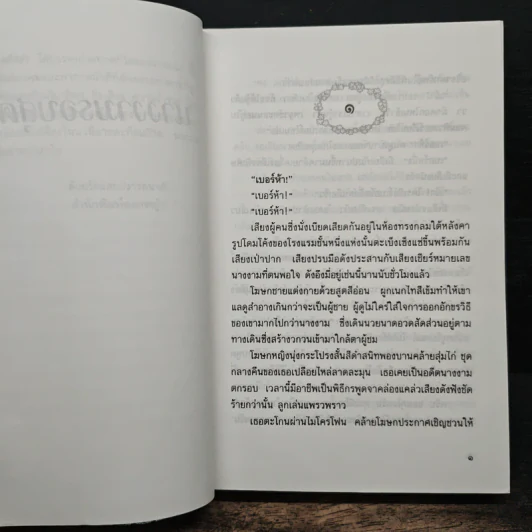 ๑
“เบอร์ห้า!”
“เบอร์ห้า!”
“เบอร์ห้า!”
เสียงผู้คนซึ่งนั่งเบียดเสียดกันอยู่ในห้องทรงกลมใต้หลังคา
รูปโดมโค้งของโรงแรมชั้นหนึ่งแห่งนั้นตะเบ็งเซ็งแซ่ขึ้นพร้อมกัน
เสียงเป่าปาก เสียงปรบมือดังประสานกับเสียงเชียร์หมายเลข
นางงามที่ตนพอใจ ดังอึงมี่อยู่เช่นนี้นานนับชั่วโมงแล้ว
โฆษกชายแต่งกายด้วยสูตสีอ่อน ผูกเนกไทสีเข้มทำให้เขา
แลดูสำอางเกินกว่าจะเป็นผู้ชาย ผู้ดูไม่ใคร่ใส่ใจการออกอักขรวิธี
ของเขามากไปกว่านางงาม ซึ่งเดินนวยนาดอวดสัดส่วนอยู่ตาม
ทางเดินซึ่งสร้างวกวนเข้ามาใกล้ตาผู้ชม
โฆษกหญิงนุ่งกระโปรงสั้นสีดำสนิทพองบานคล้ายสุ่มไก่ ชุด
กลางคืนของเธอเปลือยไหล่ลาดละมุน เธอเคยเป็นอดีตนางงาม
ตกรอบ เวลานี้มีอาชีพเป็นพิธีกรพูดจาคล่องแคล่วเสียงดังฟังชัด
ร้ายกว่านั้น ลูกเล่นแพรวพราว
เธอตะโกนผ่านไมโครโฟน คล้ายโฆษกประกาศเชิญชวนให้
๑